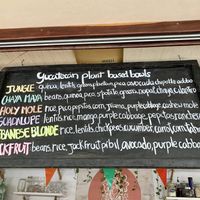 Yucatecan plant based bowls
JUNGLE quinoa, lentils, greens, plantain, pico, avocado,
CHAYA MAYA beans, quinoa, pico, potato, greens,
HOLY MOLE rice, pico, pepitos, corn, jicama, purple cabbage, cashew mole
GUADALUPE lentils, rice, mango, purple cabbage, pepitos,
LEBANESE BLONDE rice, lentils, chickpeas, cucumber, carrot, corn,
JACKFRUIT beans, rice, jackfruit pibil, avocado, purple cabbage